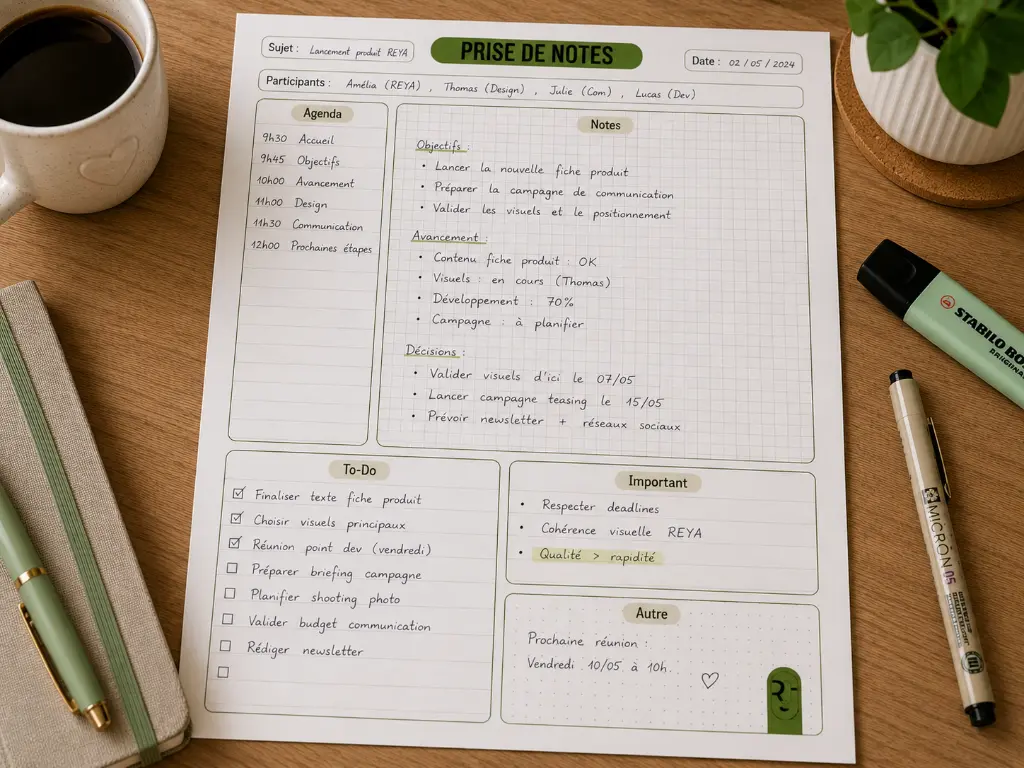 PRISE DE NOTES
Sujet : Lancement produit REYA
Date : 02 / 05 / 2024
Participants : Amélia (REYA) , Thomas (Design) , Julie (Com) , Lucas (Dev)
Agenda
9h30 Accueil
9h45 Objectifs
10h00 Avancement
11h00 Design
11h30 Communication
12h00 Prochaines étapes
Notes
Objectifs :
• Lancer la nouvelle fiche produit
• Préparer la campagne de communication
• Valider les visuels et le positionnement
Avancement :
• Contenu fiche produit : OK
• Visuels : en cours (Thomas)
• Développement : 70%
• Campagne : à planifier
Décisions :
• Valider visuels d'ici le 07/05
• Lancer campagne teasing le 15/05
• Prévoir newsletter + réseaux sociaux
To-Do
☑ Finaliser texte fiche produit
☑ Choisir visuels principaux
☑ Réunion point dev (vendredi)
☐ Préparer briefing campagne
☐ Planifier shooting photo
☐ Valider budget communication
☐ Rédiger newsletter
☐
Important
• Respecter deadlines
• Cohérence visuelle REYA
• Qualité > rapidité
Autre
Prochaine réunion :
Vendredi 10/05 à 10h.
STABILO BO
MICRON 05